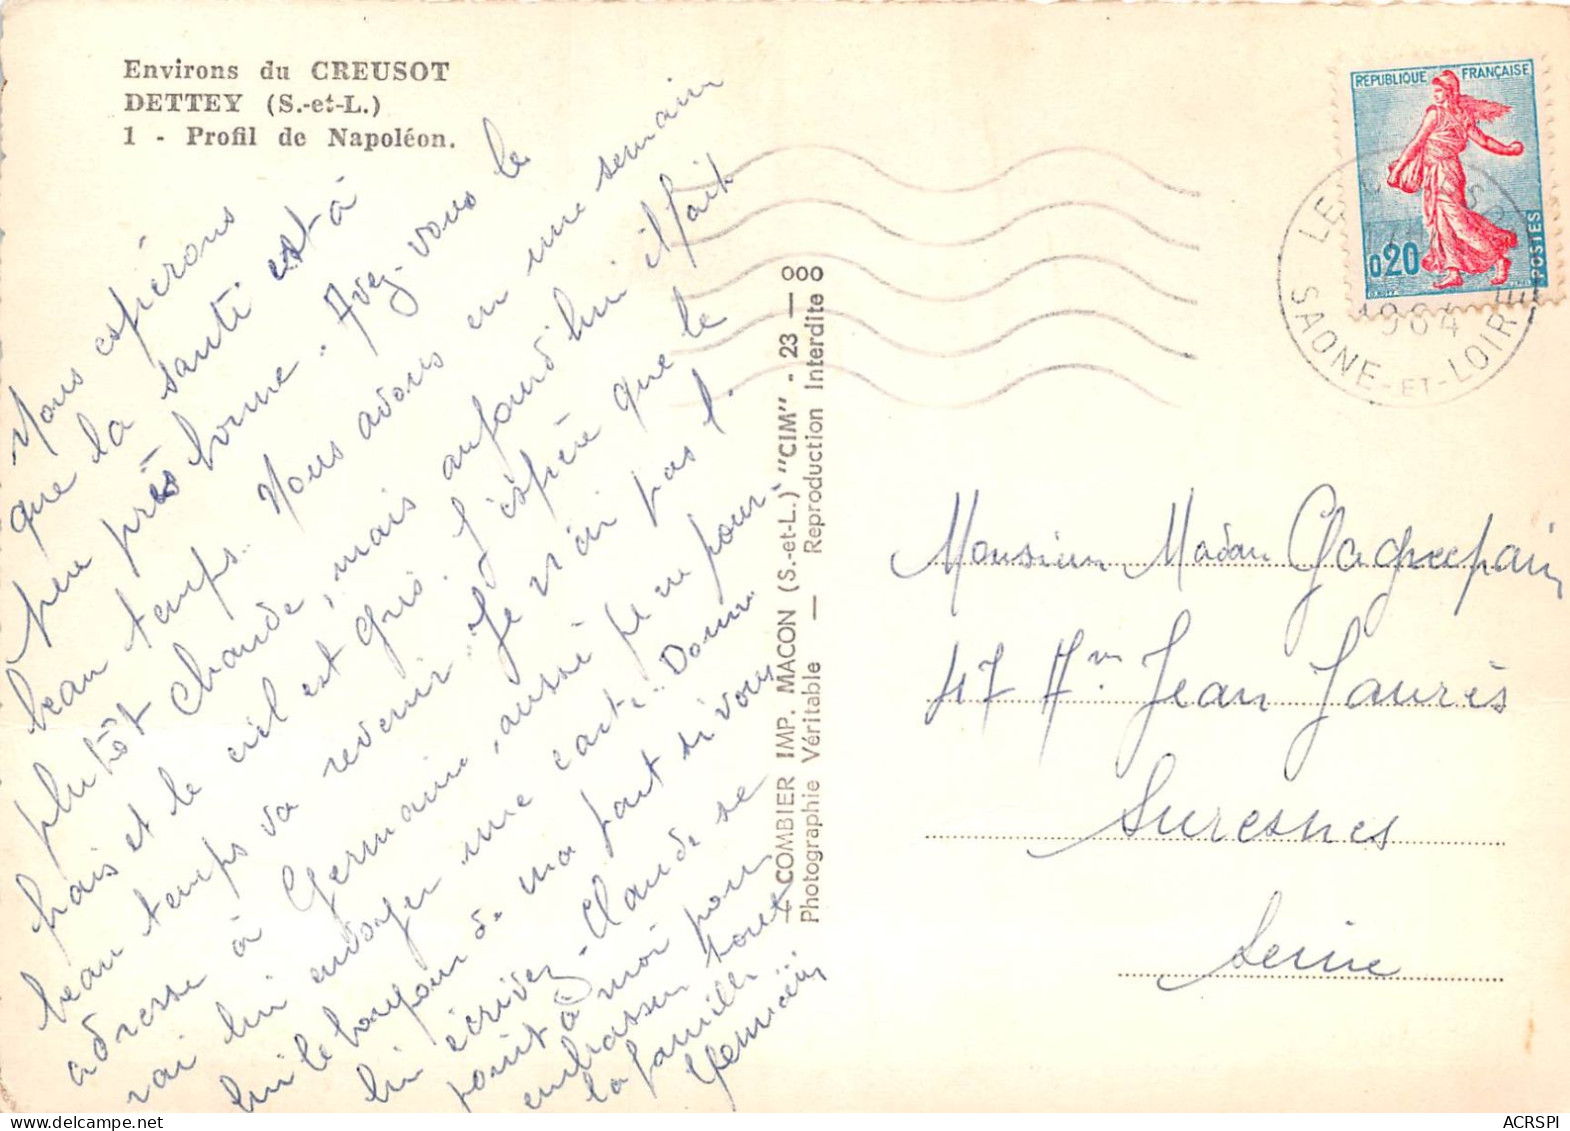 Environs du CREUSOT
DETTEY (S.-et-L.)
1 - Profil de Napoléon.
Nous espérons
que la santé est à
peu près bonne. Avez-vous le
beau temps. Nous avons eu une semain
plutôt chaude, mais aujourd'hui il fait
frais et le ciel est gris. J'espère que le
beau temps va revenir. Je n'ai pas l'
adresse à Germaine, aussi je ne pour-
rai lui envoyer une carte. Donn
lui le bonjour de ma part si vous
lui écrivez. Claude se
joint à moi pour
embrasser toute
la famille
COMBIER IMP. MACON (S.-et-L.) "CIM" - 23 - 000
Photographie Véritable — Reproduction Interdite
REPUBLIQUE FRANÇAISE
0,20
POSTES
LE
1964
SAONE-ET-LOIRE
Monsieur Madam
47 Jean Jaurès
Suresnes
Seine
ACRSPI